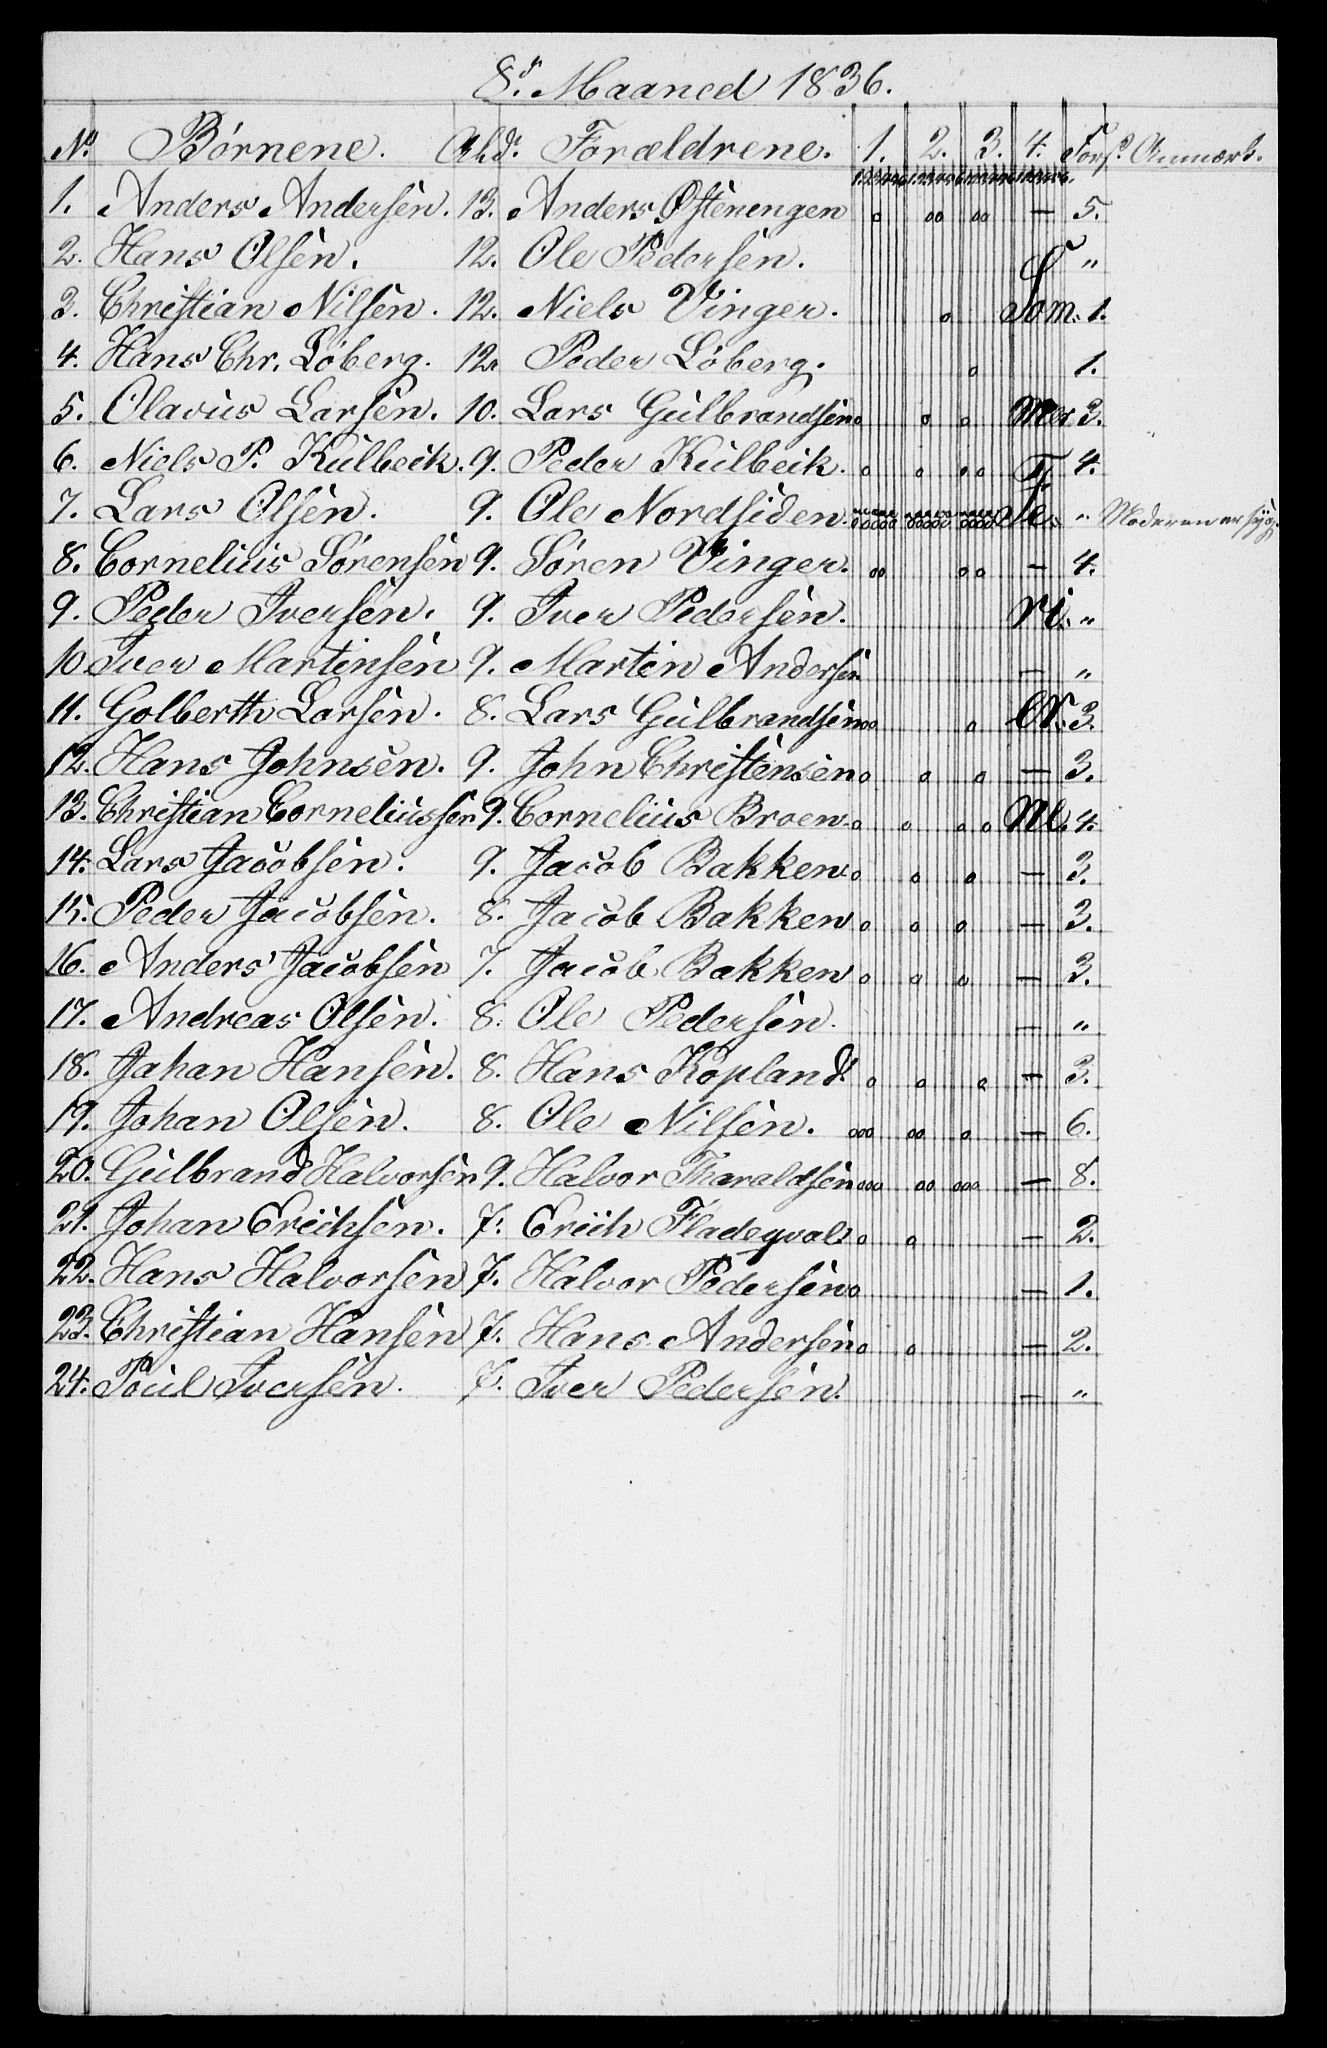 8d. Maaned 1836.
No. Børnene. Ald. Forældrene. 1. 2. 3. 4. Fors. Anmærk.
1. Anders Andersen. 13. Anders Østenengen o oo oo — 5.
2. Hans Olsen. 12. Ole Pedersen. "
3. Christian Nilsen. 12. Niels Vinger. o Som. 1.
4. Hans Chr. Løberg. 12. Peder Løberg. o 1.
5. Olavus Larsen. 10. Lars Gulbrandsen o o o 3.
6. Niels P. Kulbeik. 9. Peder Kulbeik. o o oo 4.
7. Lars Olsen. 9. Ole Nordsiden. oooo ooooo ooooo fe " Moderen er syg.
8. Cornelius Sørensen 9. Søren Vinger. oo oo — 4.
9. Peder Iversen. 9. Iver Pedersen. ri. "
10. Iver Martinsen 9. Martin Andersen — "
11. Golberth Larsen. 8. Lars Gulbrandsen oo o er. 3.
12. Hans Johnsen. 9. John Christensen o o o — 3.
13. Christian Corneliussen 9. Cornelius Broen o o oo 4.
14. Lars Jacobsen. 9. Jacob Bakken o o o — 3.
15. Peder Jacobsen. 8. Jacob Bakken o o o — 3.
16. Anders Jacobsen 7. Jacob Bakken o o o — 3.
17. Andreas Olsen. 8. Ole Pedersen. — "
18. Johan Hansen. 8. Hans Kopland. o o o — 3.
19. Johan Olsen. 8. Ole Nilsen. ooo oo o — 6.
20. Gulbrand Halvorsen 9. Halvor Tharaldsen ooo oo ooo — 8.
21. Johan Erichsen. 7. Erich Fladeqval. o o — 2.
22. Hans Halvorsen 7. Halvor Pedersen o — 1.
23. Christian Hansen 7. Hans Andersen o o — 2.
24. Poul Iversen. 7. Iver Pedersen. — "